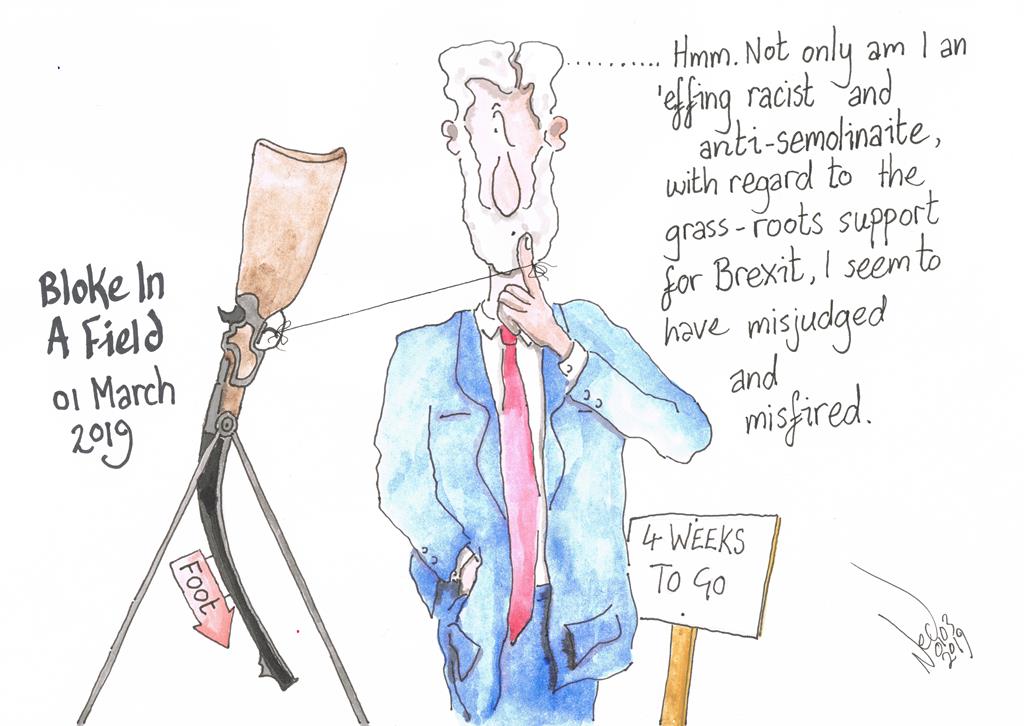 Bloke In
A Field
01 March
2019
.......... Hmm. Not only am I an
'effing racist and
anti-semolinaite,
with regard to the
grass-roots support
for Brexit, I seem to
have misjudged
and
misfired.
FOOT
4 WEEKS
TO GO
Nec
01.03
2019